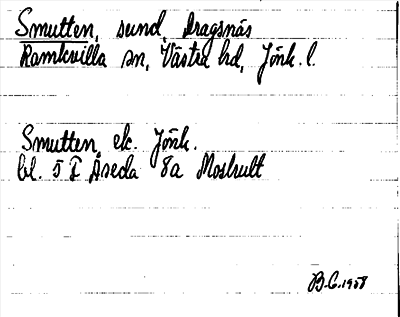 Smutten, sund, Dragsnäs
Ramkvilla sn, Västra hd, Jönk. l.
Smutten, ek. Jönk.
bl. 5 F Åseda 8a Moshult
B.C. 1958